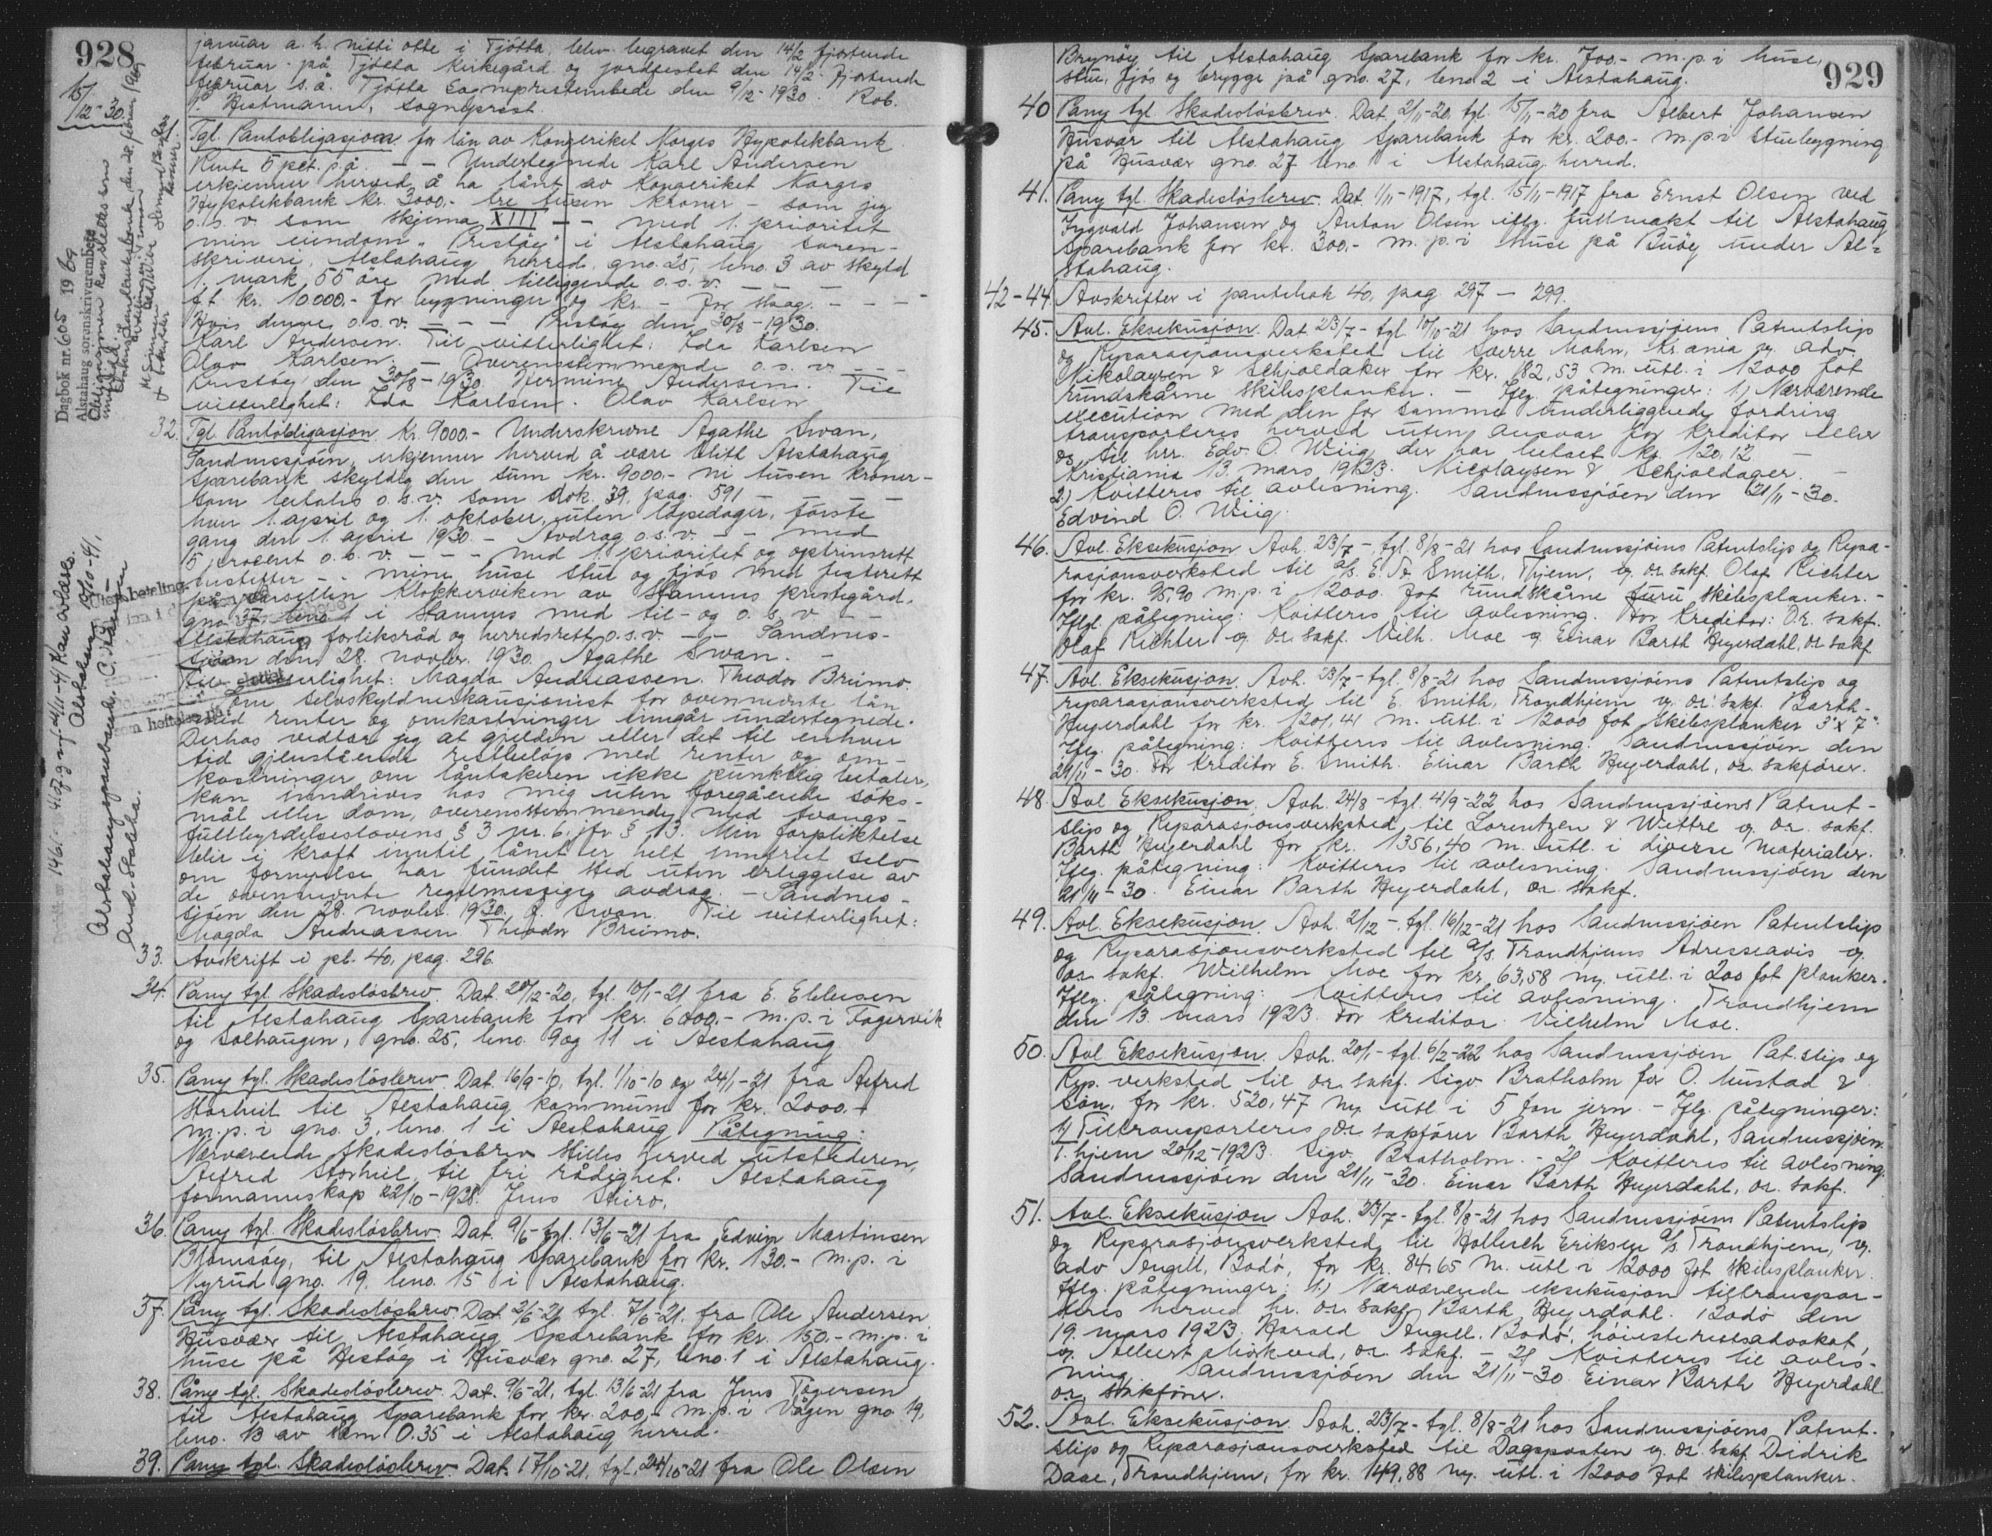 928
15/12-30.
januar a. h. nitti otte i Tjötta, blev begravet den 14/2 fjortende
februar på Tjötta kirkegård og jordfestet den 14/2 fjortende
februar s.å. Tjötta Sogneprestembede den 9/12-1930. Rob.
Hestmann, sogneprest.
Tgl. Pantobligasjon for lån av Kongeriket Norges Hypotekbank
Rente 5 pct. p.å. — — Undertegnede Karl Andersen
erkjenner herved å ha lånt av Kongeriket Norges
Hypotekbank kr. 3000.- tre tusen kroner - som jeg
o.s.v. som skjema XIII — — med 1. prioritet
min eiendom "Pristöy" i Alstahaug soren-
skriveri, Alstahaug herred, gno. 25, bno. 3 av skyld
1, mark 55 öre med tilliggende o.s.v. — — —
f.t. kr. 10000.- for bygninger og kr. - for skog. - - - -
Hvis denne o.s.v. — — — Pristöy den 30/8-1930.
Karl Andersen. Til vitterlighet: Ida Karlsen
Olav Karlsen. — Overensstemmende o.s.v. - - -
Pristöy den 30/8-1930. Hermine Andersen. Til
vitterlighet: Ida Karlsen. Olav Karlsen
32. Tgl. Pantobligasjon. Kr. 9000.- Underskrevne Agathe Svan,
Sandnessjöen, erkjenner herved å være blitt Alstahaug
Sparebank skyldig den sum kr. 9000.- ni tusen kroner -
som betales o.s.v. som dok. 39, pag. 591 — — —
hver 1. april og 1. oktober, uten löpedager, förste
gang den 1. april 1930. - Avdrag o.s.v. — — med
5 procent o.s.v. - - - med 1. prioritet og optrinsrett
bustifter - - mine huse stue og fjös med festerett
på parsellen Klokkerviken av Stamnes prestegård,
gno. 37 bno. 1 i Stamnes med til- og o.s.v. —
Alstahaug forliksråd og herredsrett o.s.v. — — Sandnes-
sjöen den 28. novbr. 1930. Agathe Svan. —
Til vitterlighet: Magda Andreassen. Theodor Brinno.
Som selvskyldnerkausjonist for ovennevnte lån
med renter og omkostninger inngår undertegnede.
Derhos vedtar jeg at gjelden eller det til enhver
tid gjenstående restbelöp med renter og om-
kostninger, om låntakeren ikke punktlig betaler,
kan inndrives hos mig uten foregående söks-
mål eller dom, overensstemmende med tvangs-
fullbyrdelseslovens § 3 nr. 6, jfr § 13. Min forpliktelse
blir i kraft inntil lånet er helt innfriet selv
om fornyelse har fundet sted uten erleggelse av
de ovennevnte regelmessige avdrag. - Sandnes-
sjöen den 28. novbr. 1930. A. Svan. Til vitterlighet:
Magda Andreassen Theodor Brinno.
33. Avskrift i pb. 40, pag. 296.
34. Pany tgl. Skadeslösbrev. Dat. 20/12-20, tgl. 10/1-21 fra E. Ebbesen
til Alstahaug Sparebank for kr. 6000.- m.p. i Fagervik
og Solhaugen, gno. 25, bno. 9 og 11 i Alstahaug
35. Pany tgl. Skadeslösbrev. Dat. 16/9-10, tgl. 1/10-10 og 24/1-21 fra Alfred
Storheil til Alstahaug kommune for kr. 2000.-
m.p. i gno. 3, bno. 1 i Alstahaug. Påtegning:
Nærværende skadeslösbrev stilles herved utstederen,
Alfred Storheil til fri rådighet. Alstahaug
formannskap 22/10-1928. Jens
36. Pany tgl. Skadeslösbrev. Dat. 9/6-tgl. 13/6-21 fra Edvin Martinsen
Blomsöy, til Alstahaug Sparebank for kr. 130.- m.p. i
Nyrud gno. 19, bno. 15 i Alstahaug.
37. Pany tgl. Skadeslösbrev. Dat 2/6-21 tgl. 7/6-21. fra Ole Andersen
Husvær til Alstahaug Sparebank for kr. 150.- m.p. i
huse på Hestöy i Husvær gno. 27, bno. 1 i Alstahaug.
38. Pany tgl. Skadeslösbrev. Dat. 9/6-21, tgl. 13/6-21 fra Jens Tögersen
til Alstahaug Sparebank for kr. 200.- m.p. i Vågen gno. 19,
bno. 13 av skm 0.35 i Alstahaug herred.
39. Pany tgl. Skadeslösbrev. Dat. 17/10-21, tgl. 24/10-21 fra Ole Olsen
Dagbok nr. 605 1969
Alstahaug sorenskriverembete
146. Kan avlæses.
Alstahaug 2/10-41.
Alstahaug Sparebank.
And. Stokka.
929
Brynöy, til Alstahaug Sparebank for kr. 700.- m.p. i huse,
stue, fjös og brygge på gno. 27, bno. 2 i Alstahaug.
40 Pany tgl. Skadeslösbrev. Dat. 2/11-20, tgl. 15/11-20 fra Albert Johansen
Husvær til Alstahaug Sparebank for kr. 200.- m.p. i stuebygning
på Husvær gno. 27 bno. 1 i Alstahaug herred.
41. Pany tgl. Skadeslösbrev. Dat. 1/11-1917, tgl. 15/11-1917 fra Ernst Olsen ved
Ingvald Johansen og Anton Olsen iflg. fullmakt til Alstahaug
Sparebank for kr. 300.- m.p. i huse på Buöy under Al-
stahaug.
42-44. Avskrifter i pantebok 40, pag 297 - 299.
45. Avl. Eksekusjon. Dat 23/7- tgl. 10/10-21 hos Sandnessjöens Patentslip
og Reparasjonsverksted til Sverre Mohn, Kr.ania v. adv.
Nikolaysen & Schjoldager for kr. 182,53 m. utl. i 12000 fot
rundskårne skibsplanker. - Iflg. påtegninger: 1) Nærværende
execution med den for samme underliggende fordring
transporteres herved uten ansvar for kreditor eller
os til hrr. Edv. O. Wiig der har betalt kr. 120,12. —
Kristiania 13. mars 1923. Nicolaysen & Schjoldager. —
2) Kvitteres til avlesning. Sandnessjöen den 21/11-30.
Edvind O. Wiig.
46. Avl. Eksekusjon. Avh. 23/7- tgl. 8/8-21 hos Sandnessjöens Patentslip og Repa-
rasjonsverksted til A/s. E. A. Smith, Thjem, v. or. sakf. Olaf Richter
for kr. 95,90 m.p. i 12000 fot rundskårne furu skibsplanker. -
Iflg. påtegning: Kvitteres til avlesning. For kreditor: O.r. sakf.
Olaf Richter v. or. sakf. Vilh. Moe v Einar Barth Heyerdahl, or. sakf
47. Avl. Eksekusjon. Avh. 23/7- tgl. 8/8-21 hos Sandnessjöens Patentslip og
reparasjonsverksted til E. Smith, Trondhjem v. or. sakf. Barth-
Heyerdahl for kr. 1201,41 m. utl. i 12000 fot skibsplanker 3"x7".
Iflg. påtegning: Kvitteres til avlesning. Sandnessjöen den
21/11-30. For kreditor E. Smith. Einar Barth Heyerdahl, or. sakförer.
48. Avl Eksekusjon. Avh. 24/8- tgl. 4/9-22 hos Sandnessjöens Patent-
slip og Reparasjonsverksted, til Lorentzen & Wettre v. or. sakf.
Barth Heyerdahl for kr. 1356,40 m. utl. i diverse materialer.
Iflg. påtegning: Kvitteres til avlesning. Sandnessjöen den
21/11-30. Einar Barth Heyerdahl, or. sakf.
49. Avl. Eksekusjon. Avh. 2/12- tgl. 16/12-21 hos Sandnessjöen Patentslip
og Reparasjonsverksted til A/s. Trondhjems Adresseavis v.
or. sakf. Wilhelm Moe for kr. 63,58 m. utl. i 200 fot planker.
Iflg. påtegning: Kvitteres til avlesning. Trondhjem
den 13. mars 1923. For kreditor. Vilhelm Moe.
50. Avl Eksekusjon. Avh. 20/1- tgl. 6/2-22 hos Sandnessjöen Pat.slip og
Rep. verksted til or. sakf. Sigv Bratholm for O. Mustad &
Sön, for kr. 520,47 m. utl i 5 ton jern. - Iflg. påtegninger:
1) Tiltransporteres or sakförer Barth Heyerdahl, Sandnessjöen.
T.hjem 20/12-1923. Sigv. Bratholm. - 2) Kvitteres til avlesning.
Sandnessjöen den 21/11-30. Einar Barth Heyerdahl, or. sakf.
51. Avl. Eksekusjon Avh. 23/7- tgl. 8/8-21 hos Sandnessjöens Patentslip
og Reparasjonsverksted, til Hollseth Eriksen A/s. Trondhjem, v.
adv Angell, Bodö, for kr. 84,65 m. utl i 12000 fot skibsplanker.
Iflg. påtegninger: 1.) Nærværende eksekusjon tiltranspor-
teres herved hr. or. sakf. Barth Heyerdahl. Bodö den
19. mars 1923. Harald Angell. Bodö, höiesterettsadvokat,
v. Albert Mörkved, or. sakf. - 2) Kvitteres til avles-
ning. Sandnessjöen den 21/11-30. Einar Barth Heyerdahl.
or. sakförer.
52. Avl. Eksekusjon. Avh. 23/7- tgl. 8/8-21 hos Sandnessjöens Patent-
slip og Reparasjonsverksted til Dagsposten v. or. sakf Didrik
Daae, Trondhjem, for kr. 149,88 m. utl. i 12000 fot skibsplanker.